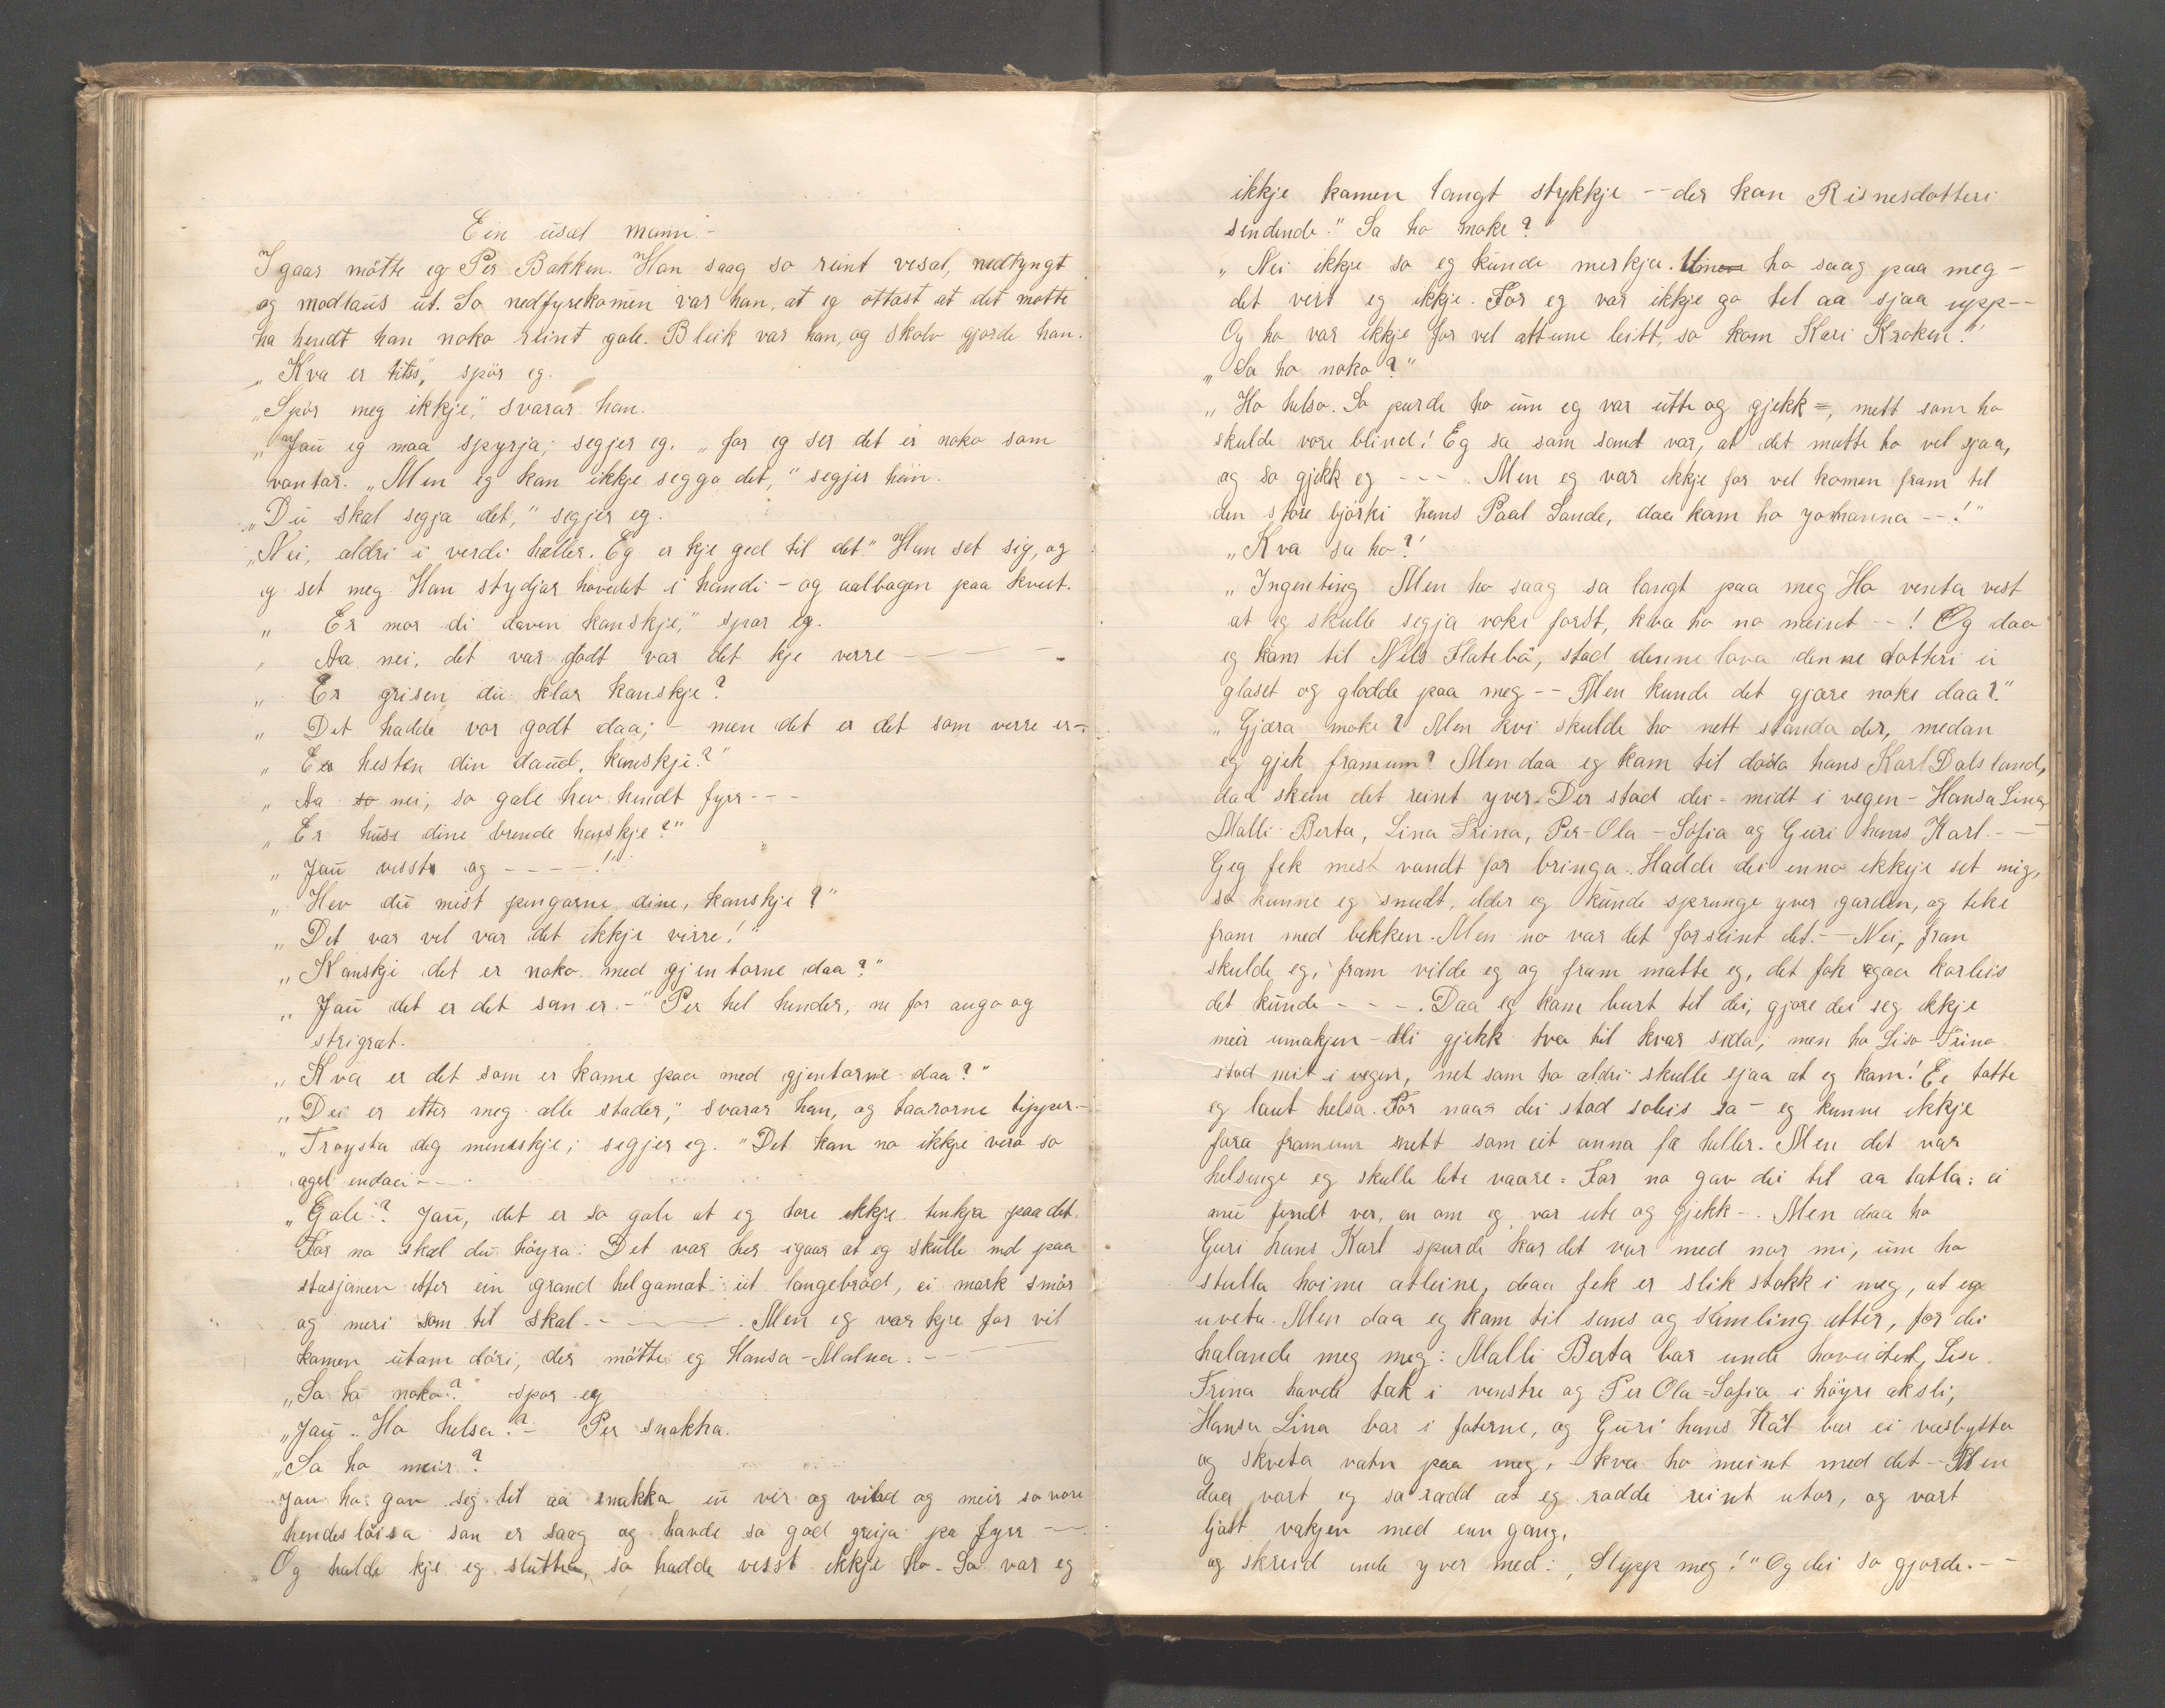 Ein usal mann.-
I gaar mötte eg Per Bakken. Han saag so reint vesal, nedtyngt
og modlaus ut. So nedfyrekomen var han, at eg ottast at det motte
ha hendt han noko reint gale. Bleik var han, og skalv gjorde han.
„Kva er tits," spör eg.
„Spör meg ikkje," svarar han.
„Jau eg maa spyrja; segjer eg. „for eg ser det er noko som
vantar. „Men eg kan ikkje segga det," segjer hein.
„Du skal segja det," segjer eg.
„Nei, aldri i verdi heller. Eg er kje god til det." Han set sig, og
eg set meg. Han stydjar hovedet i handi - og aalbogen paa kneet.
„ Er mor di daven kanskje," spør eg.
„ Aa nei, det var godt var det kje verre — — —
„ Er grisen du klar kanskje?
„ Det hadde vor godt daa; - men det er det som verre er-.
„ Er hesten din daud, kanskje?"
„ Aa so nei, so gale hev hendt fyrr - - -
„ Er huse dine brende kanskje?"
„ Jau visst og - - - - !"
„ Hev du mist pengarne dine, kanskje?"
„ Det var vel var det ikkje virre!"
„ Kanskje det er noko med gjentorne daa?"
„ Jau det er det som er.-" Per hel hender, ne for augo og
strigræt.
„ Kva er det som er kome paa med gjentorne daa?"
„ Dei er etter meg alle stader," svarar han, og taararne tipper.-
„ Troysta deg menneskje; segjer eg. "Det kan no ikkje vera so
agel endaa - -
„ Gale? Jau, det er so gale at eg tore ikkje tenkja paa det.
For no skal du höyra: Det var her igaar at eg skulle ned paa
stasjonen etter ein grand helgamat: eit langebröd, ei mark smör
og meri som til skal. - — — . Men eg var kje for vel
komen utam döri, der mötte eg Hansa-Malna. - —
„Sa ho noko?" spor eg
„Jau.. Ho helsa?- Per snakka.
„Sa ho meir?
Jau ho gav seg til aa snakka um ver og vind og meir so vore
hendes löisa som er saag og havde so god greija pa fyrr —
„Og halde kje eg slutta, so hadde visst ikkje ho. So var eg
ikkje komen langt stykkje -- der kom Risnesdotteri
sendende." Sa ho noke?
„ Nei ikkje so eg kunde merkja. Um ho saag paa meg -
det veit eg ikkje. For eg var ikkje go til aa sjaa upp--
Og ho var ikkje for vel attune leitt, so kom Kari Kroken!"
„ Sa ho noko?"
„ Ho helsa. So purde ho um eg var utte og gjekk =, mett som ho
skulde vore blind! Eg sa som sandt var, at det matte ho vel sjaa,
og so gjekk eg - - - . Men eg var ikkje for vel komen fram til
den store björki hans Paal Sande, daa kom ho Johanna --!"
„Kva sa ho?"
„Ingenting. Men ho saag sa langt paa meg Ho venta vest
at eg skulle segja noke forst, kva ho no meint --! Og daa
eg kam til Nils Flatebö, stod denne lava denne dotteri i
glaset og glodde paa meg -- Men kunde det gjøre noke daa?"
„ Gjæra noke? Men kvi skulde ho nett standa der, medan
eg gjek framum? Men daa eg kam til döila hans Karl Dalsland,
daa skein det reint yver. Der stod dei - midt i vegen - Hansa Lina
Malli Berta, Lina Trina, Per-Ola - Sofia og Guri hans Karl. - —
Geg fek mest vandt for bringa. Hadde dei enno ikkje set mig,
so kunne eg snudt, elder eg kunde sprunge yver garden, og teke
fram med bekken. Men no var det forseint det. - Nei, fram
skulde eg, fram vilde eg og fram matte eg, det fek gaa korleis
det kunde - - - . Daa eg kam burt til dei, gjore dei seg ikkje
meir umakjen - dei gjekk tva til kvar sida; men ho Lisa-Trina
stod mit i vegen, net som ho aldri skulle sjaa at eg kam! Ee totte
eg laut helsa. For naar dei stod soleis so - eg kunne ikkje
fara framum nett som eit anna fæ heller. Men det var
helsinge eg skulle lete vaare = For no gav dei til aa tatla: ei
mei findt ver, en om eg var ute og gjekk -. Men daa ho
Guri hans Karl spurde kor det var med mor mi, um ho
stulla hoime atleine, daa fek er slik stokk i meg, at eg
uveta. Men daa eg kam til sans og samling atter, for dei
halande meg meg: Malli Berta bar unde hovudet, Lisa
Trina havde tak i venstre og Per Ola=Sofia i höyre aksli,
Hansa Lina bar i foterne, og Guri hans Kal bar ei vasbytta
og skveta vatn paa meg, - kva ho meint med det - Men
daa vort eg so rædd at eg rædde reint utor, og vart
ljost vakjen med enn gang,
og skreid unde yver med: „Slepp meg!" Og dei so gjorde. - -